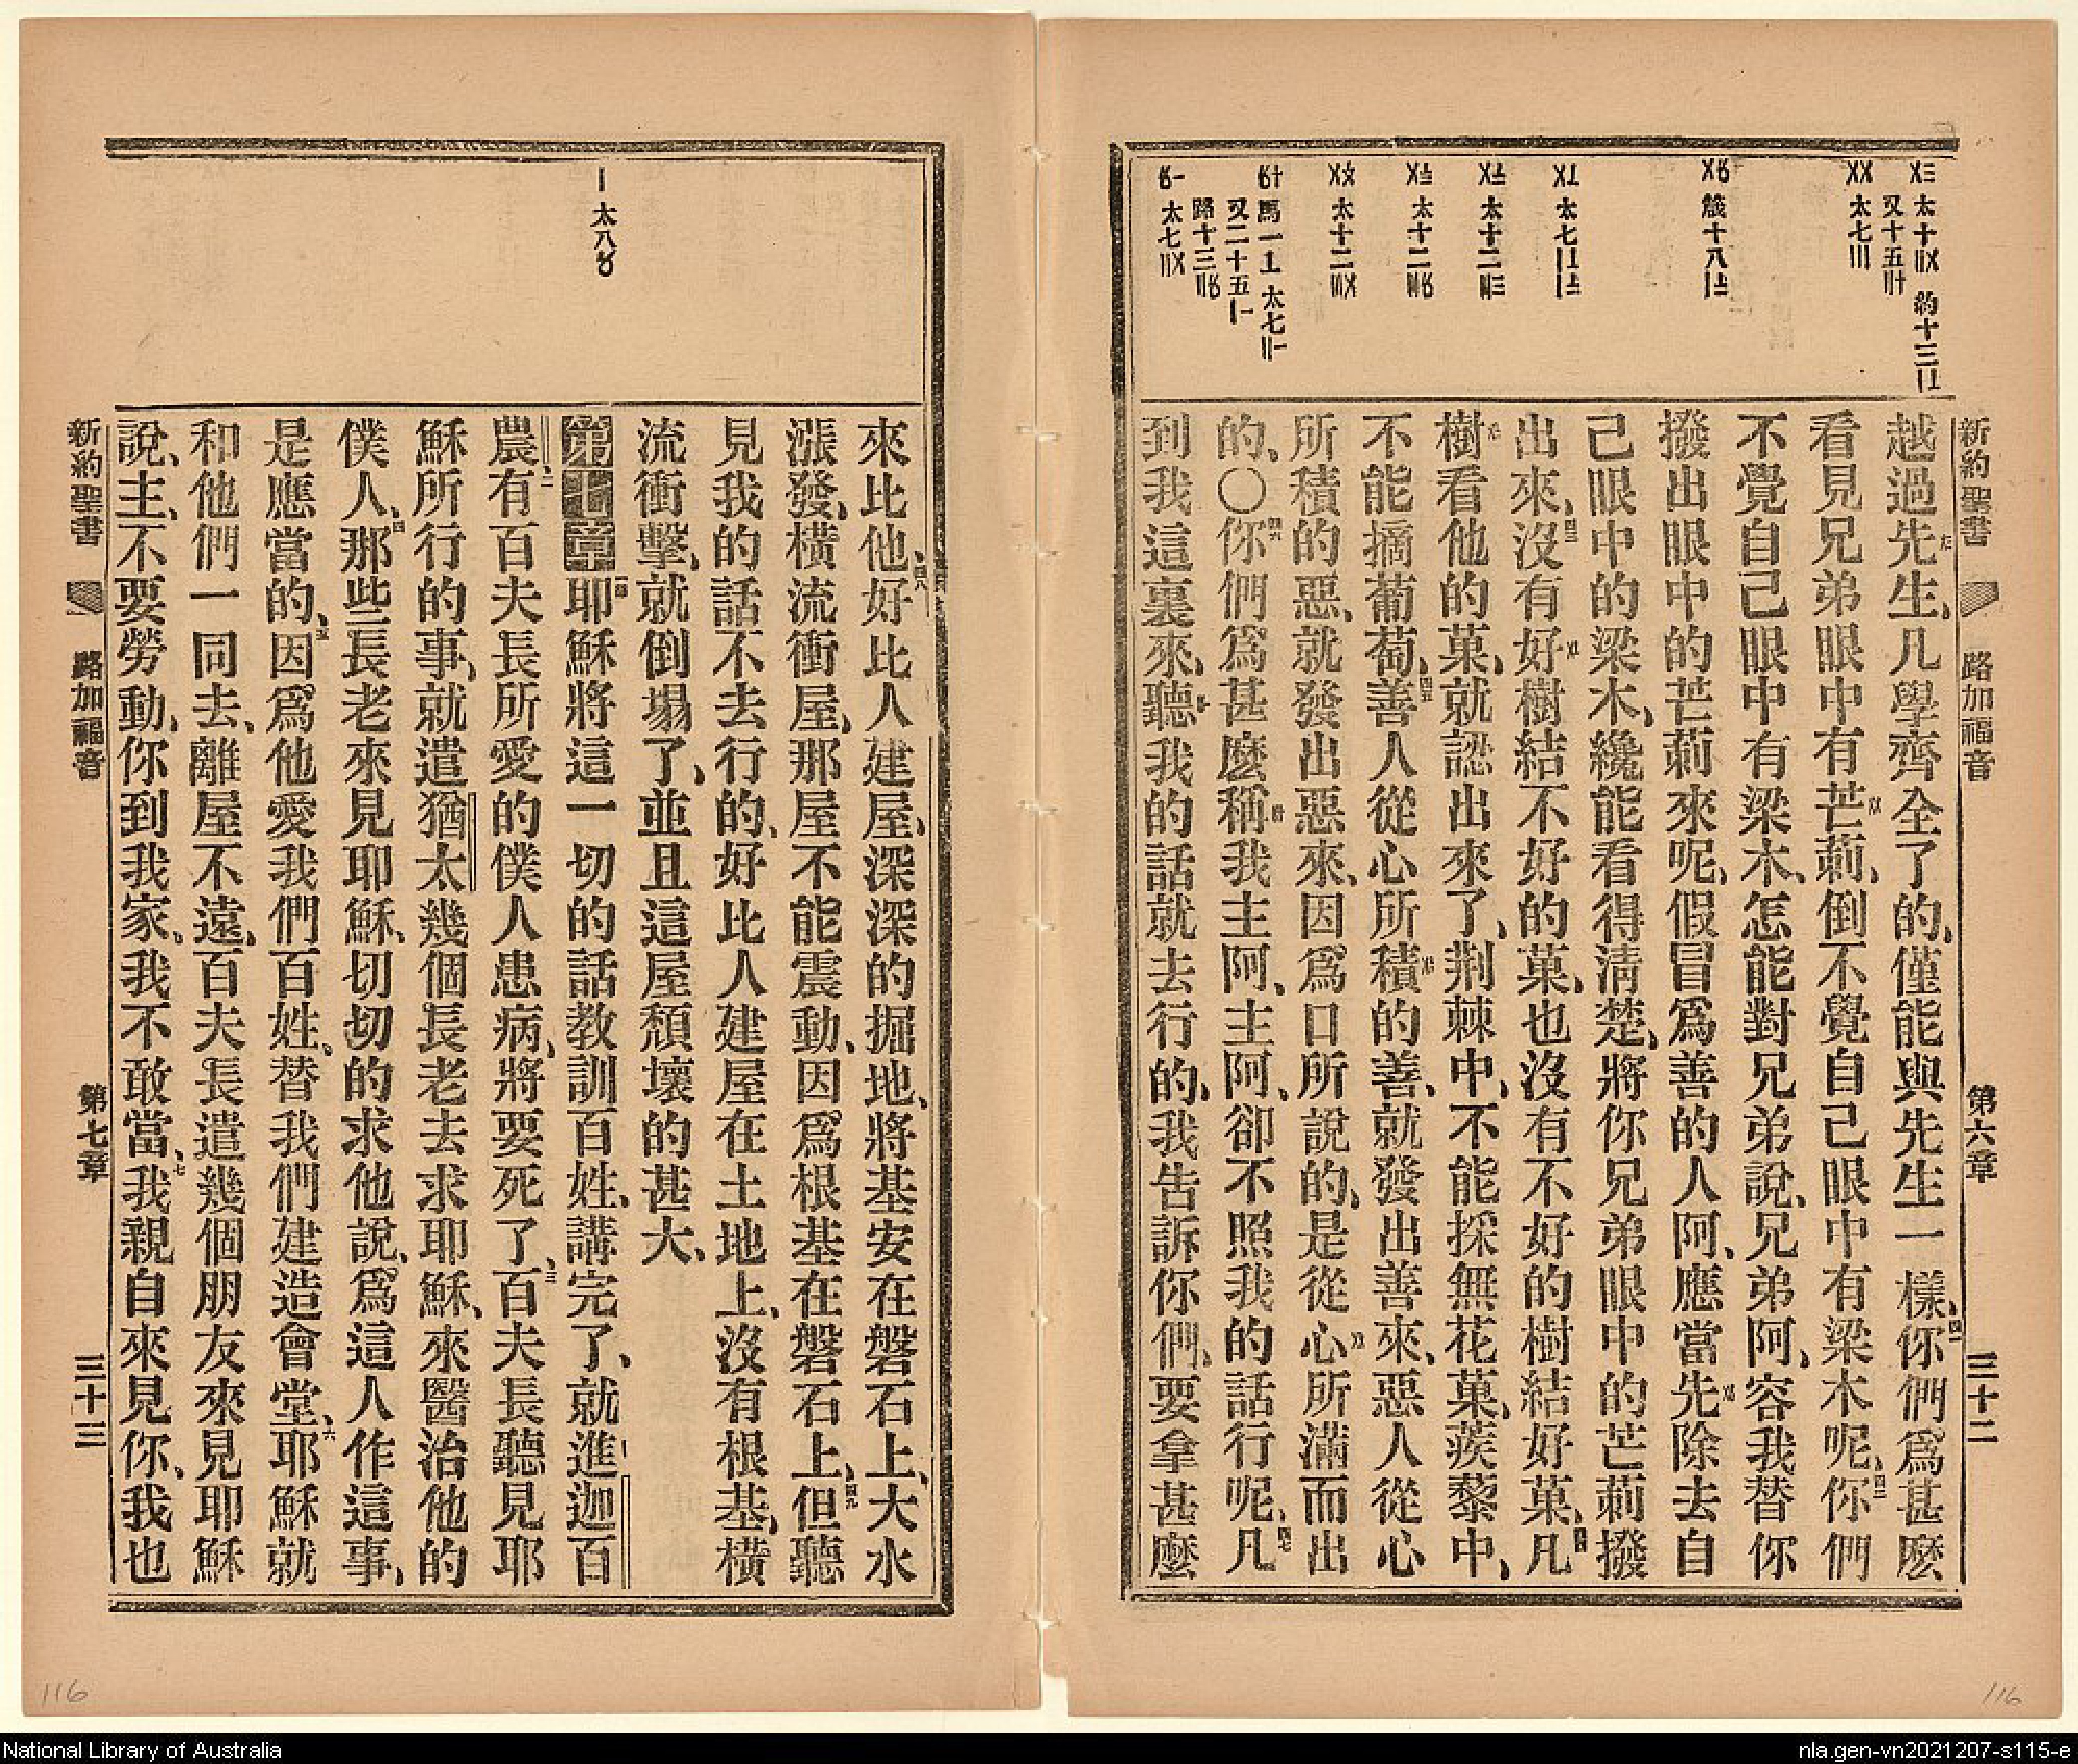 新約聖書 路加福音 第六章 三十二
〤〤 太七〣
越過先生、凡學齊全了的、僅能與先生一樣、四一你們爲甚麽
看見兄弟眼中有芒莿、倒不覺自己眼中有梁木呢、四二你們
不覺自己眼中有梁木、怎能對兄弟說、兄弟阿、容我替你
撥出眼中的芒莿來呢、假冒爲善的人阿、應當先除去自
己眼中的梁木、纔能看得清楚、將你兄弟眼中的芒莿撥
出來、四三沒有好樹結不好的菓、也沒有不好的樹結好菓、四四凡
樹看他的菓、就認出來了、荆棘中、不能採無花菓、蒺藜中、
不能摘葡萄、四五善人從心所積的善、就發出善來、惡人從心
所積的惡、就發出惡來、因爲口所說的、是從心所滿而出
的、〇四六你們爲甚麽稱我主阿、主阿、卻不照我的話行呢、四七凡
到我這裏來、聽我的話就去行的、我告訴你們、要拿甚麽
來比他、四八好比人建屋、深深的掘地、將基安在磐石上、大水
漲發、橫流衝屋、那屋不能震動、因爲根基在磐石上、四九但聽
見我的話不去行的、好比人建屋在土地上、沒有根基、橫
流衝擊、就倒塌了、並且這屋頹壞的甚大、
第七章一耶穌將這一切的話教訓百姓、講完了、就進迦百
農、二有百夫長所愛的僕人患病、將要死了、三百夫長聽見耶
穌所行的事、就遣猶太幾個長老去求耶穌、來醫治他的
僕人、四那些長老來見耶穌、切切的求他說、爲這人作這事、
是應當的、五因爲他愛我們百姓、替我們建造會堂、六耶穌就
和他們一同去、離屋不遠、百夫長遣幾個朋友來見耶穌
說、主、不要勞動、你到我家、我不敢當、七我親自來見你、我也
新約聖書 路加福音 第七章 三十三
116
116
National Library of Australia
nla.gen-vn2021207-s115-e